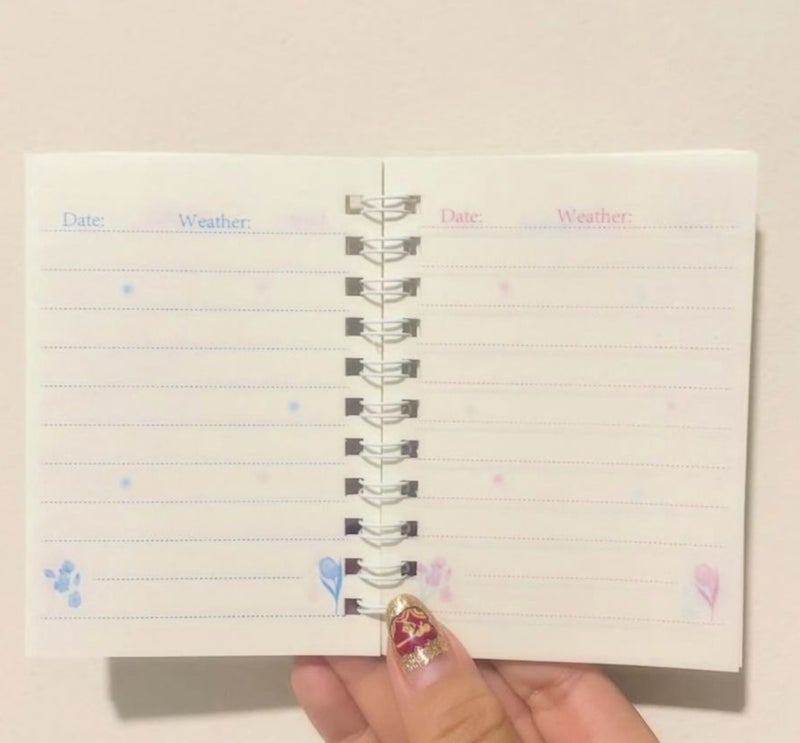 Date: Weather:
Date: Weather: